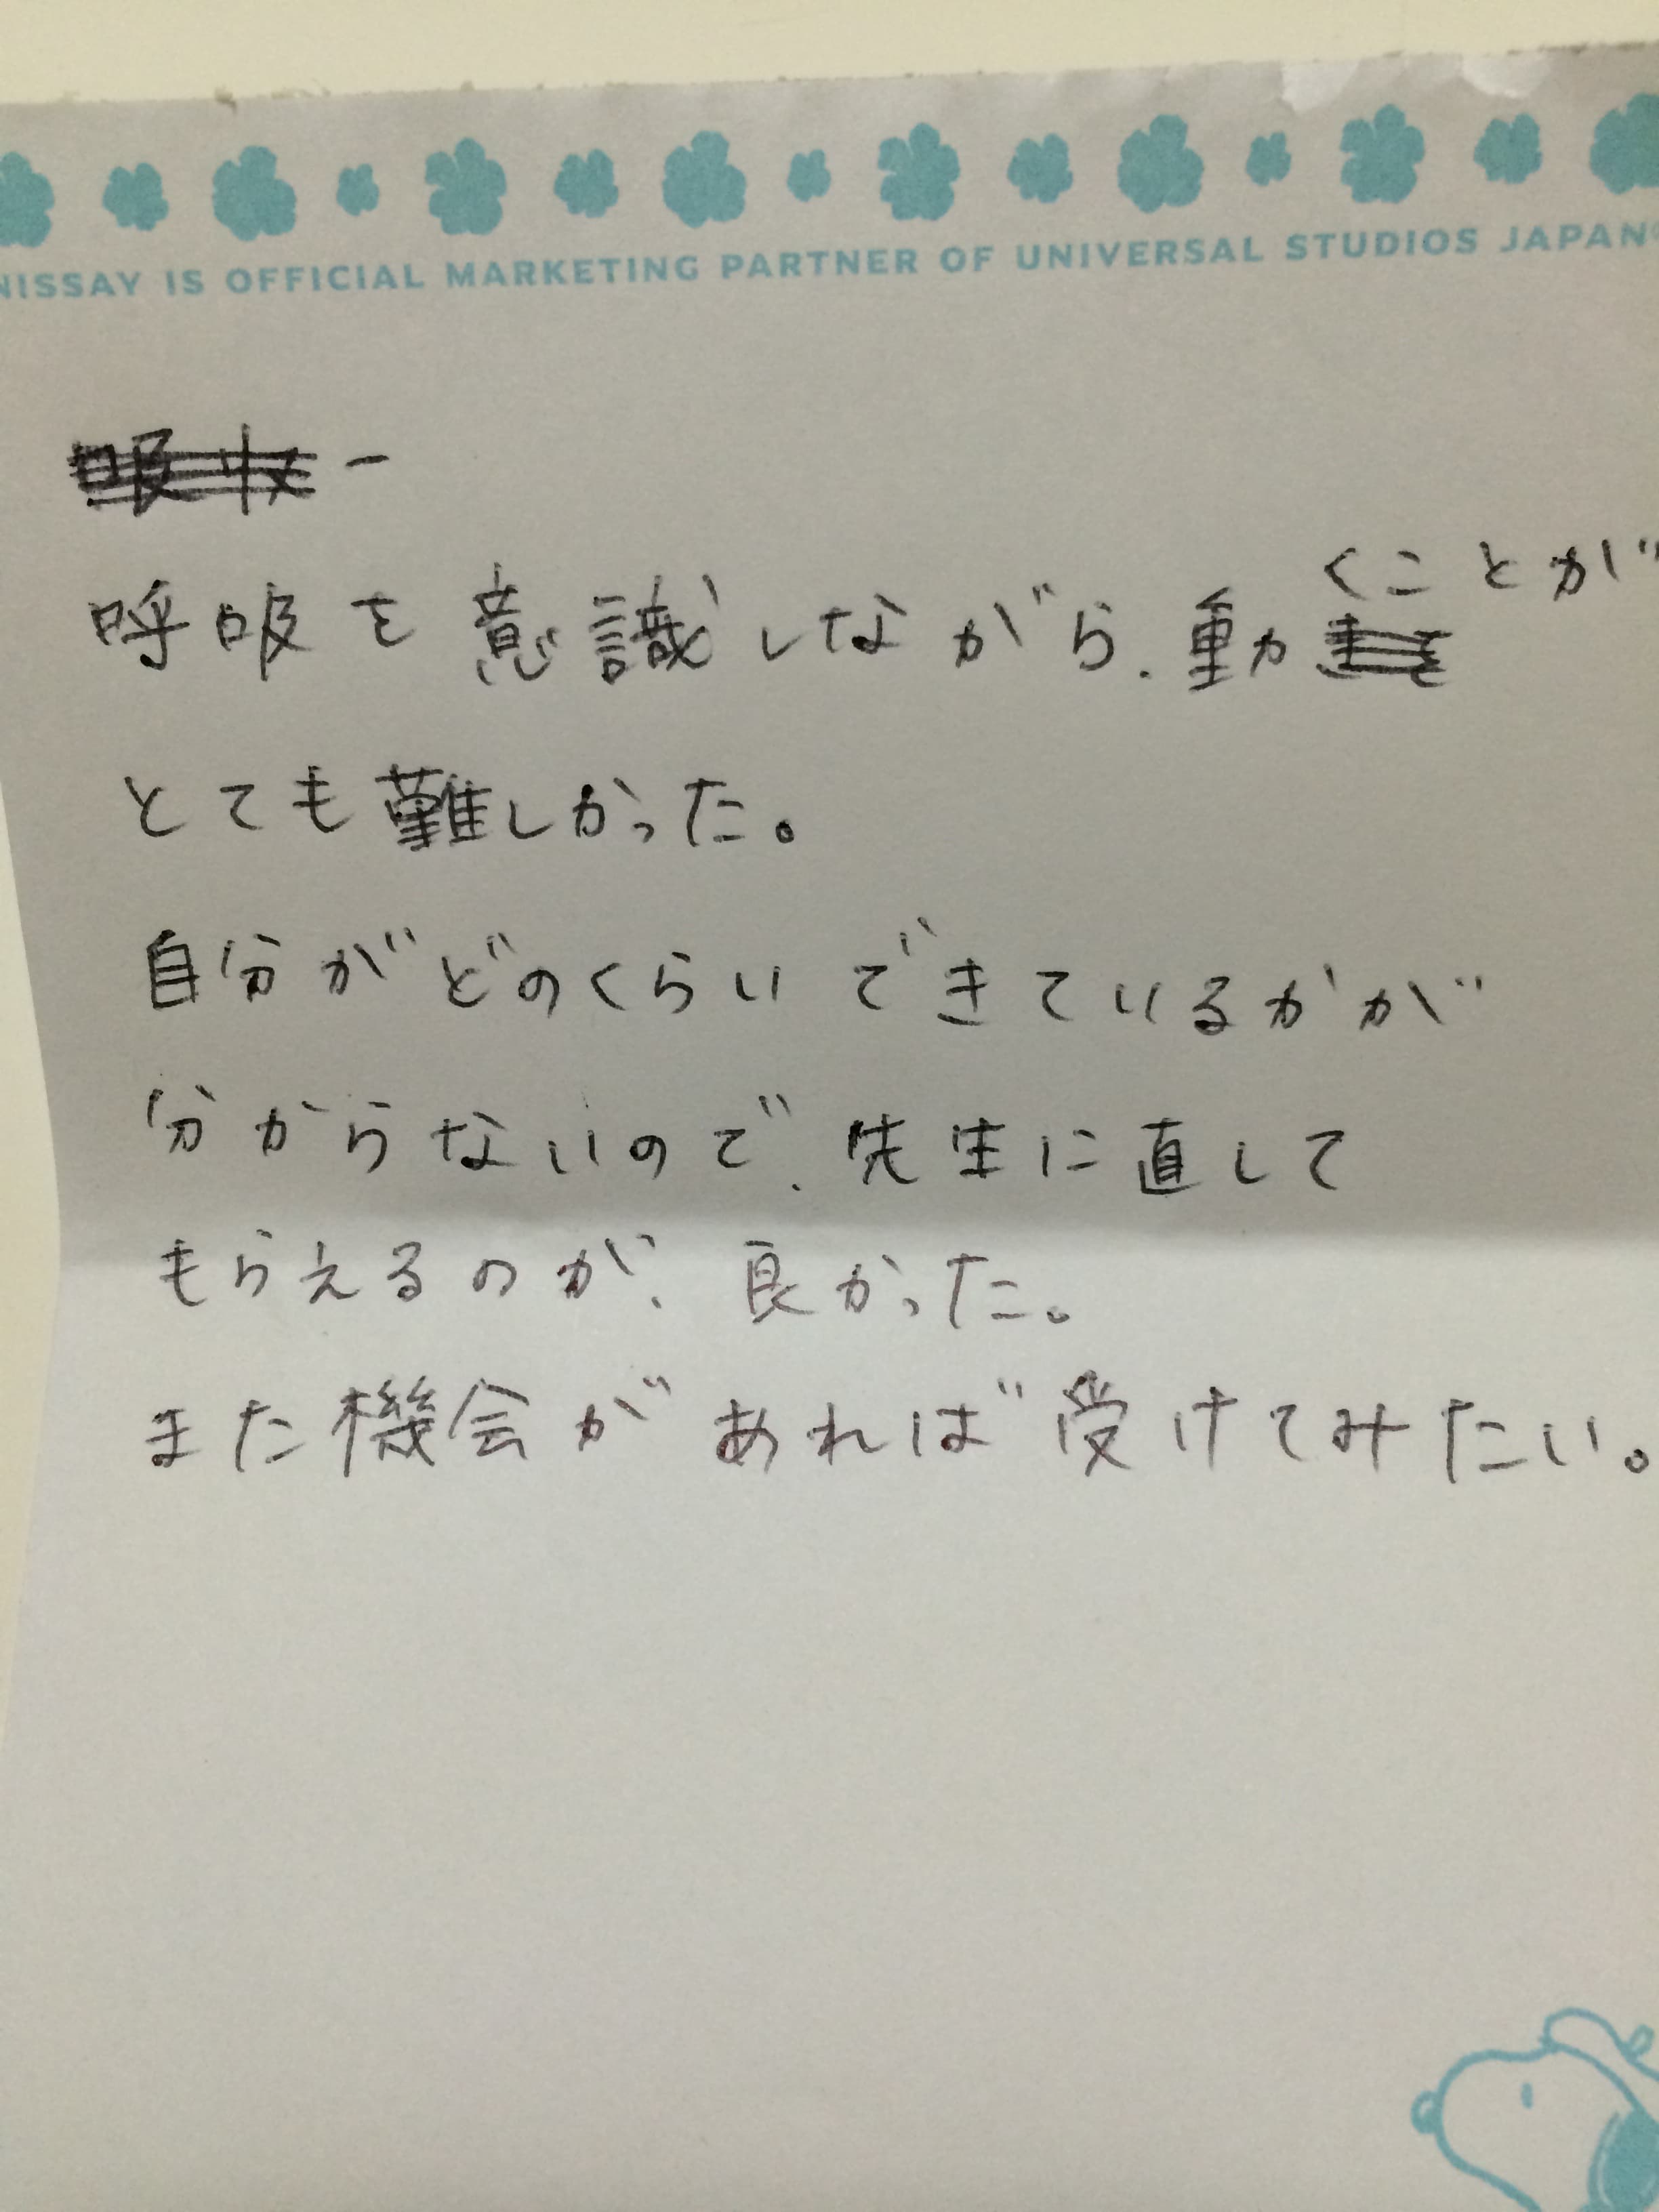 NISSAY IS OFFICIAL MARKETING PARTNER OF UNIVERSAL STUDIOS JAPAN
呼吸を意識しながら、動くことが
とても難しかった。
自分がどのくらいできているかが
分からないので、先生に直して
もらえるのが、良かった。
また機会があれば受けてみたい。